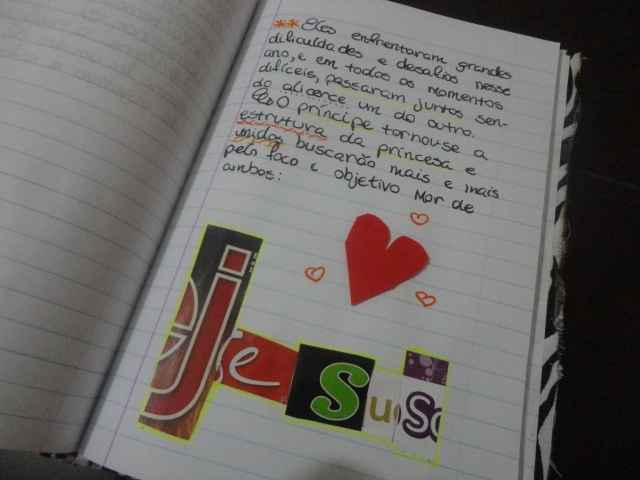 ** Eles enfrentaram grandes
dificuldades e desafios nesse
ano, e em todos os momentos
difíceis, passaram juntos sen-
do alicerce um do outro.
O príncipe tornou-se a
estrutura da princesa e
unidos buscarão mais e mais
pelo foco e objetivo Mor de
ambos:
jesus